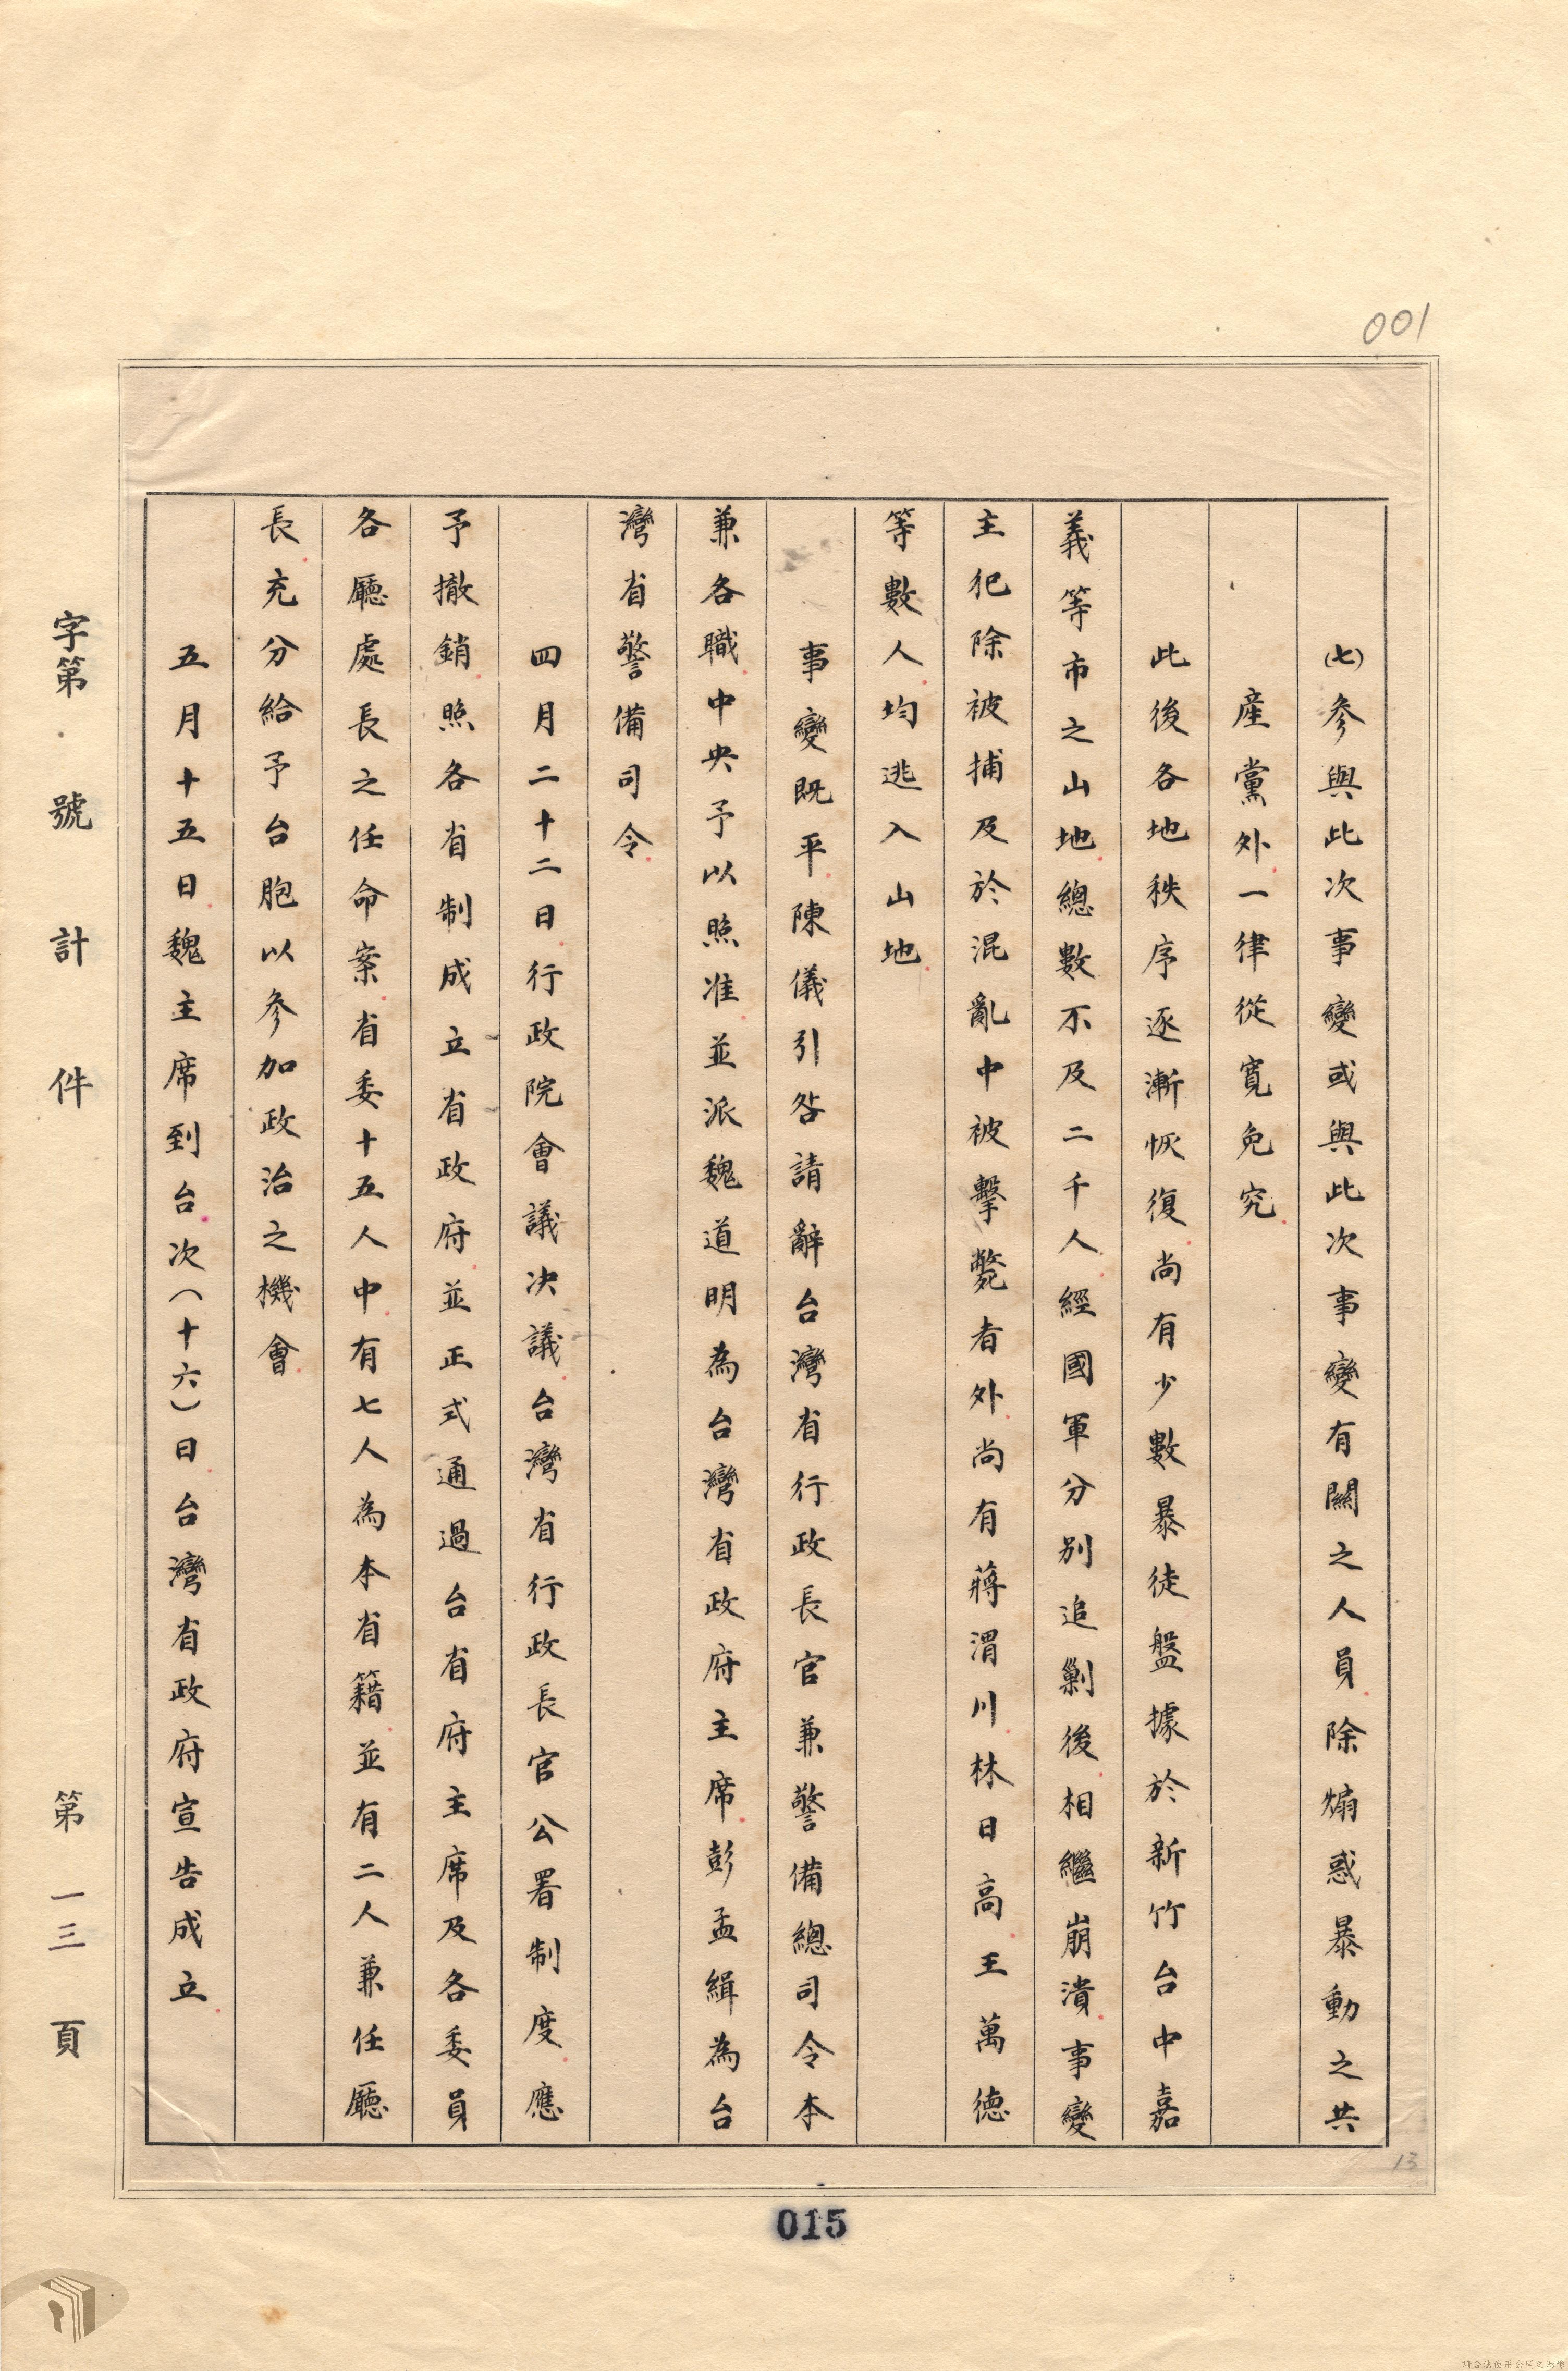 001
㈦參與此次事變或與此次事變有關之人員除煽惑暴動之共
產黨外一律從寬免究
此後各地秩序逐漸恢復尚有少數暴徒盤據於新竹台中嘉
義等市之山地總數不及二千人經國軍分別追剿後相繼崩潰事變
主犯除被捕及於混亂中被擊斃者外尚有蔣渭川林日高王萬德
等數人均逃入山地
事變既平陳儀引咎請辭台灣省行政長官兼警備總司令本
兼各職中央予以照准並派魏道明為台灣省政府主席彭孟緝為台
灣省警備司令
四月二十二日行政院會議決議台灣省行政長官公署制度應
予撤銷照各省制成立省政府並正式通過台省府主席及各委員
各廳處長之任命案省委十五人中有七人為本省籍並有二人兼任廳
長充分給予台胞以參加政治之機會
五月十五日魏主席到台次（十六）日台灣省政府宣告成立
字第 號 計 件 第 一三 頁
13
015
請合法使用公開之影像